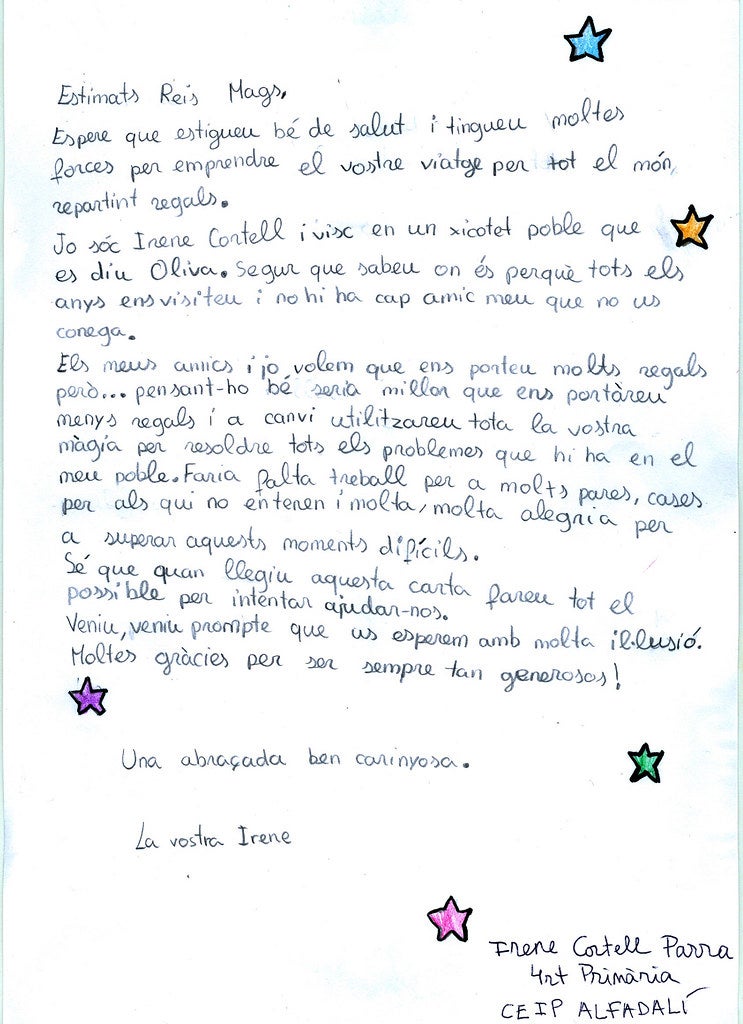 Estimats Reis Mags,
Espere que estigueu bé de salut i tingueu moltes
forces per emprendre el vostre viatge per tot el món,
repartint regals.
Jo sóc Irene Cortell i visc en un xicotet poble que
es diu Oliva. Segur que sabeu on és perquè tots els
anys ens visiteu i no hi ha cap amic meu que no us
conega.
Els meus amics i jo volem que ens porteu molts regals
però... pensant-ho bé seria millor que ens portàreu
menys regals i a canvi utilitzareu tota la vostra
màgia per resoldre tots els problemes que hi ha en el
meu poble. Faria falta treball per a molts pares, cases
per als qui no entenen i molta, molta alegria per
a superar aquests moments difícils.
Sé que quan llegiu aquesta carta fareu tot el
possible per intentar ajudar-nos.
Veniu, veniu prompte que us esperem amb molta il·lusió.
Moltes gràcies per ser sempre tan generosos!
Una abraçada ben carinyosa.
La vostra Irene
Irene Cortell Parra
4rt Primària
CEIP ALFADALÍ